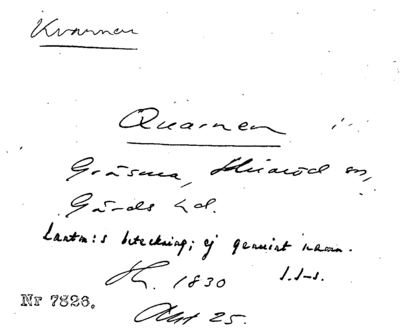 Kvarnen
Quarnen
Gräsma, Huaröd sn,
Gärds hd.
Lantm:s beteckning; ej genuint namn.
1830
Nr 7826.
Akt 25.